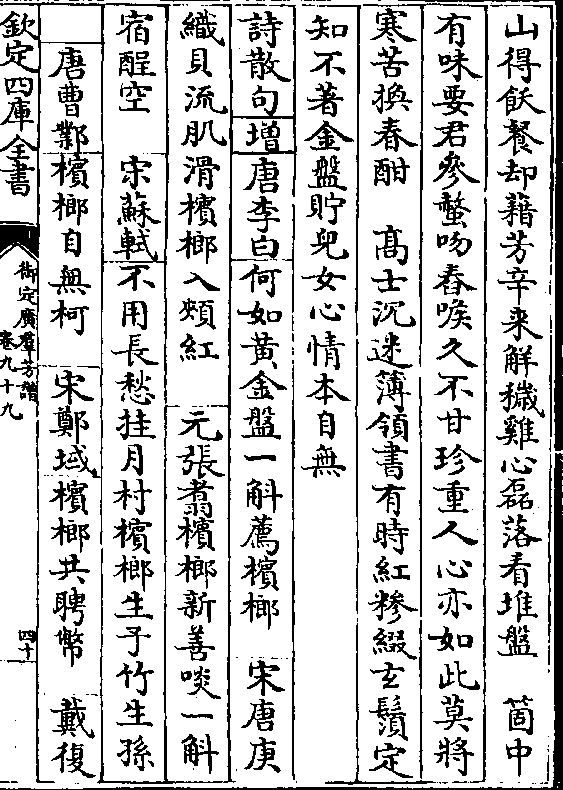 山得飫餐却藉芳辛来解穢雞心磊落看堆盤　箇中
有味要君參螫吻舂喉久不甘珍重人心亦如此莫將
寒苦換春酣　高士沉迷簿領書有時紅糝綴玄鬚定
知不著金盤貯兒女心情本自無
詩散句增唐李白何如黄金盤一斛薦檳榔　宋唐庚
織貝流肌滑檳榔入頰紅　元張翥檳榔新善啖一斛
宿酲空　宋蘇軾不用長愁挂月村檳榔生子竹生孫
唐曹鄴檳榔自無柯　宋鄭域檳榔共聘幣　戴復
欽定四庫全書
御定廣羣芳譜
卷九十九
四十